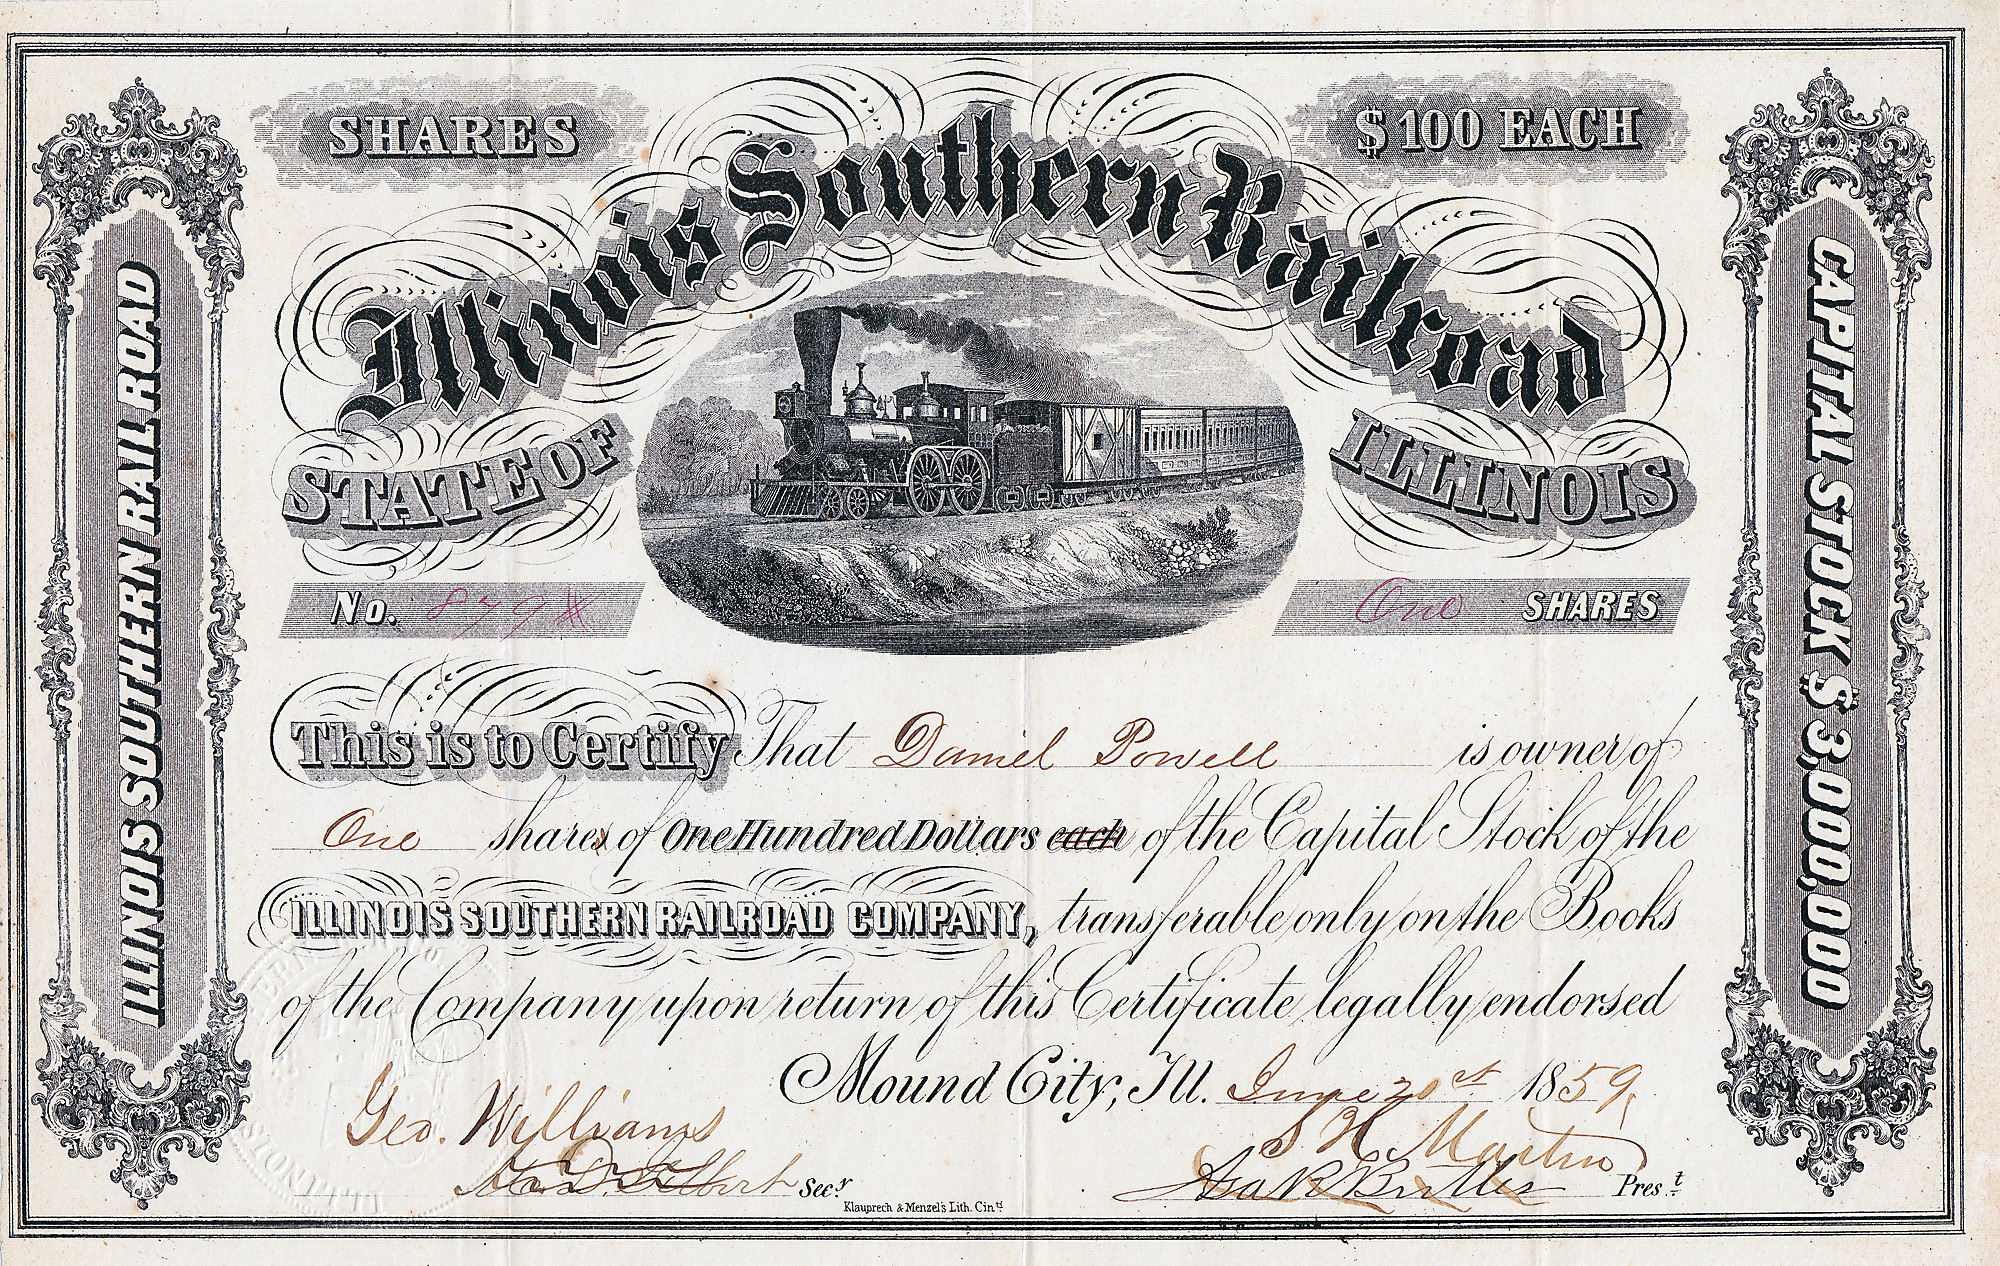 SHARES
$100 EACH
Illinois Southern Railroad
STATE OF
ILLINOIS
No. 879
One SHARES
ILLINOIS SOUTHERN RAIL ROAD
CAPITAL STOCK $3,000,000
This is to Certify That Daniel Powell is owner of
One shares of One Hundred Dollars each of the Capital Stock of the
ILLINOIS SOUTHERN RAILROAD COMPANY, transferable only on the Books
of the Company upon return of this Certificate legally endorsed
Mound City, Ill. June 20st 1859,
Geo. Williams
S H Martin
Secy
Prest
Klauprech & Menzel's Lith. Cintd